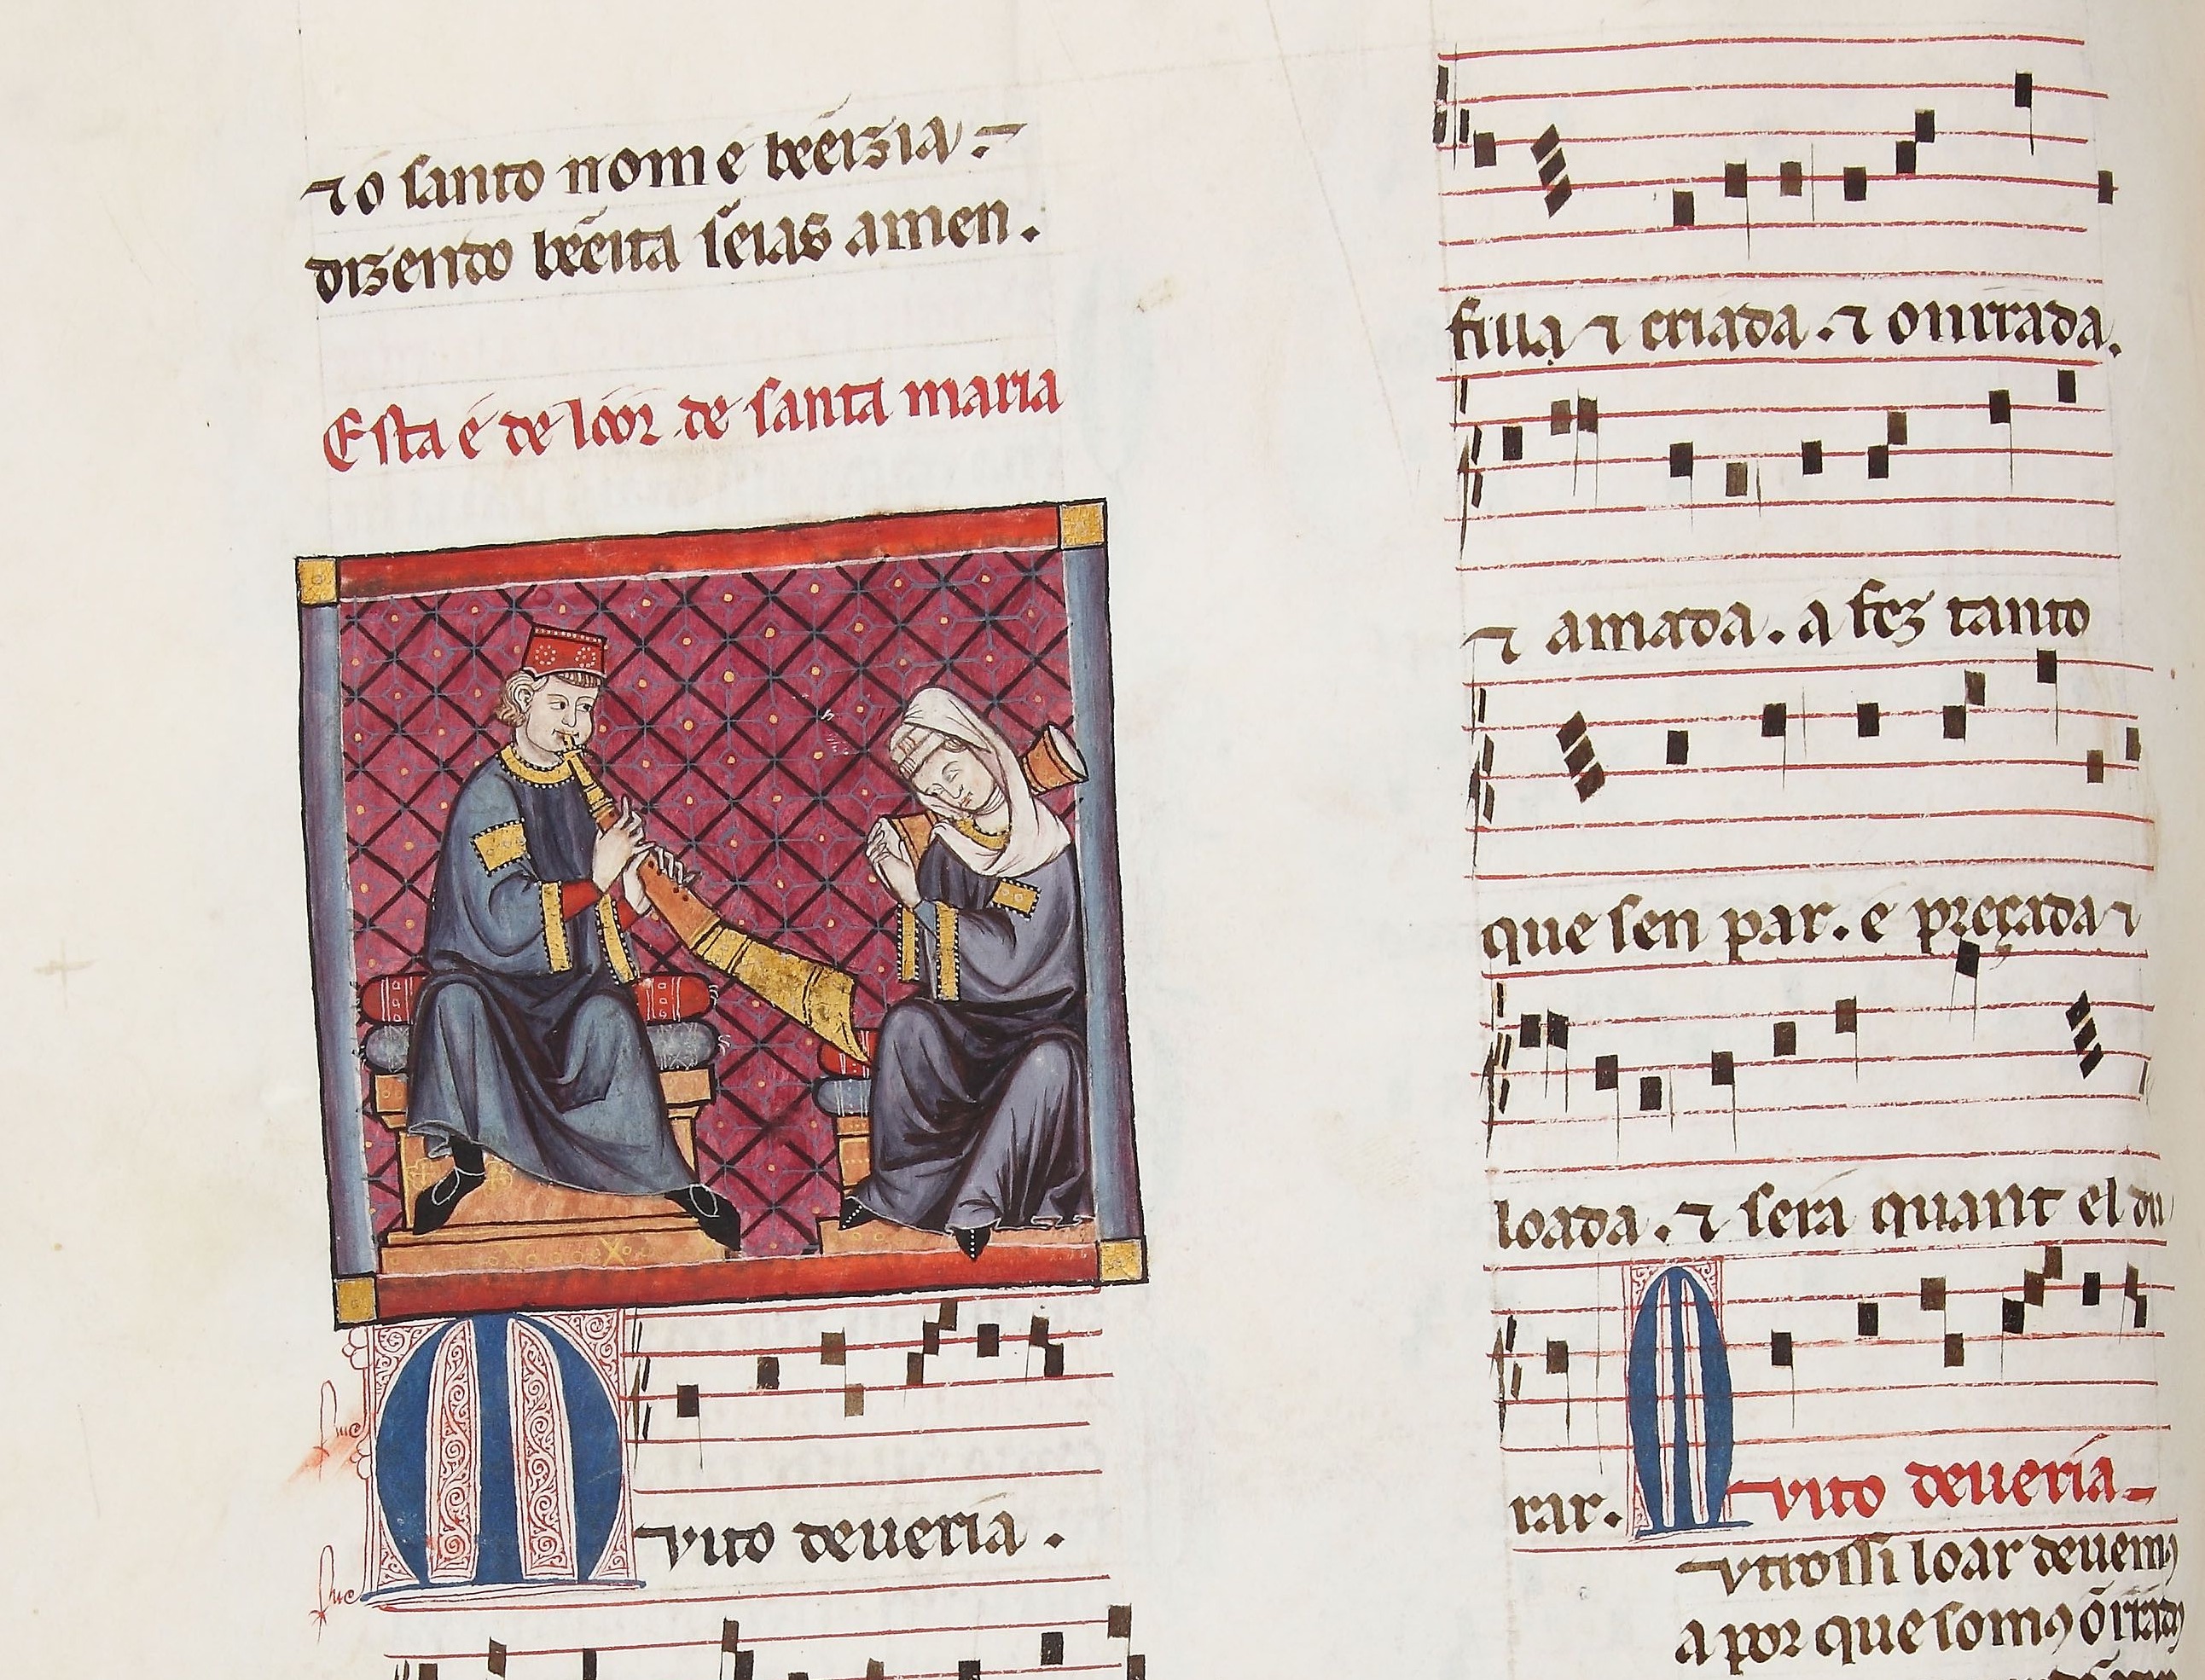 ⁊ o santo nome bẽeizia. ⁊
dizendo bẽeita seias amen.
Esta é de loor de santa maria
Muito deueria.
filla ⁊ criada. ⁊ onrrada.
⁊ amada. a fez tanto
que sen par. e preçada ⁊
loada. ⁊ será quant el du
rar. Muito deueria
Outrossi loar deuemꝰ
a por que somꝰ õrradꝰ